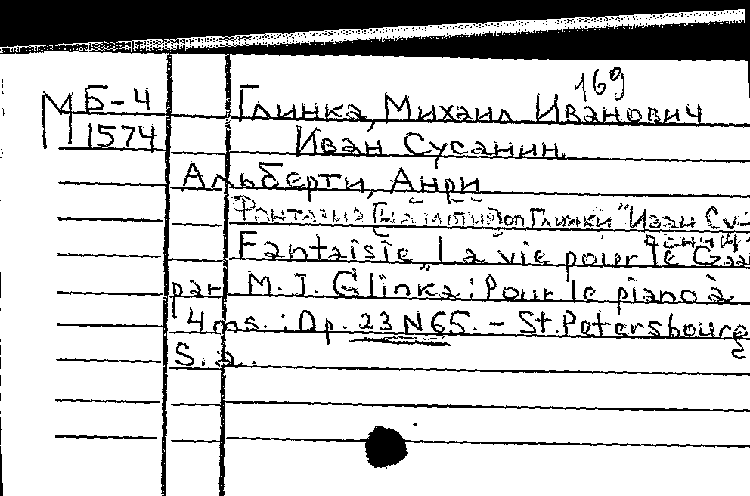 169
М Б-4 Глинка, Михаил Иванович
1574 Иван Сусанин.
Альберти, Анри
Фантазия [на мотив оп. Глинки "Иван Су-
санин"]
Fantaisie "La vie pour le Czar
par M. I. Glinka" : Pour le piano à
4 ms. : Op. 23 N 65. - St. Petersbourg
S. a.